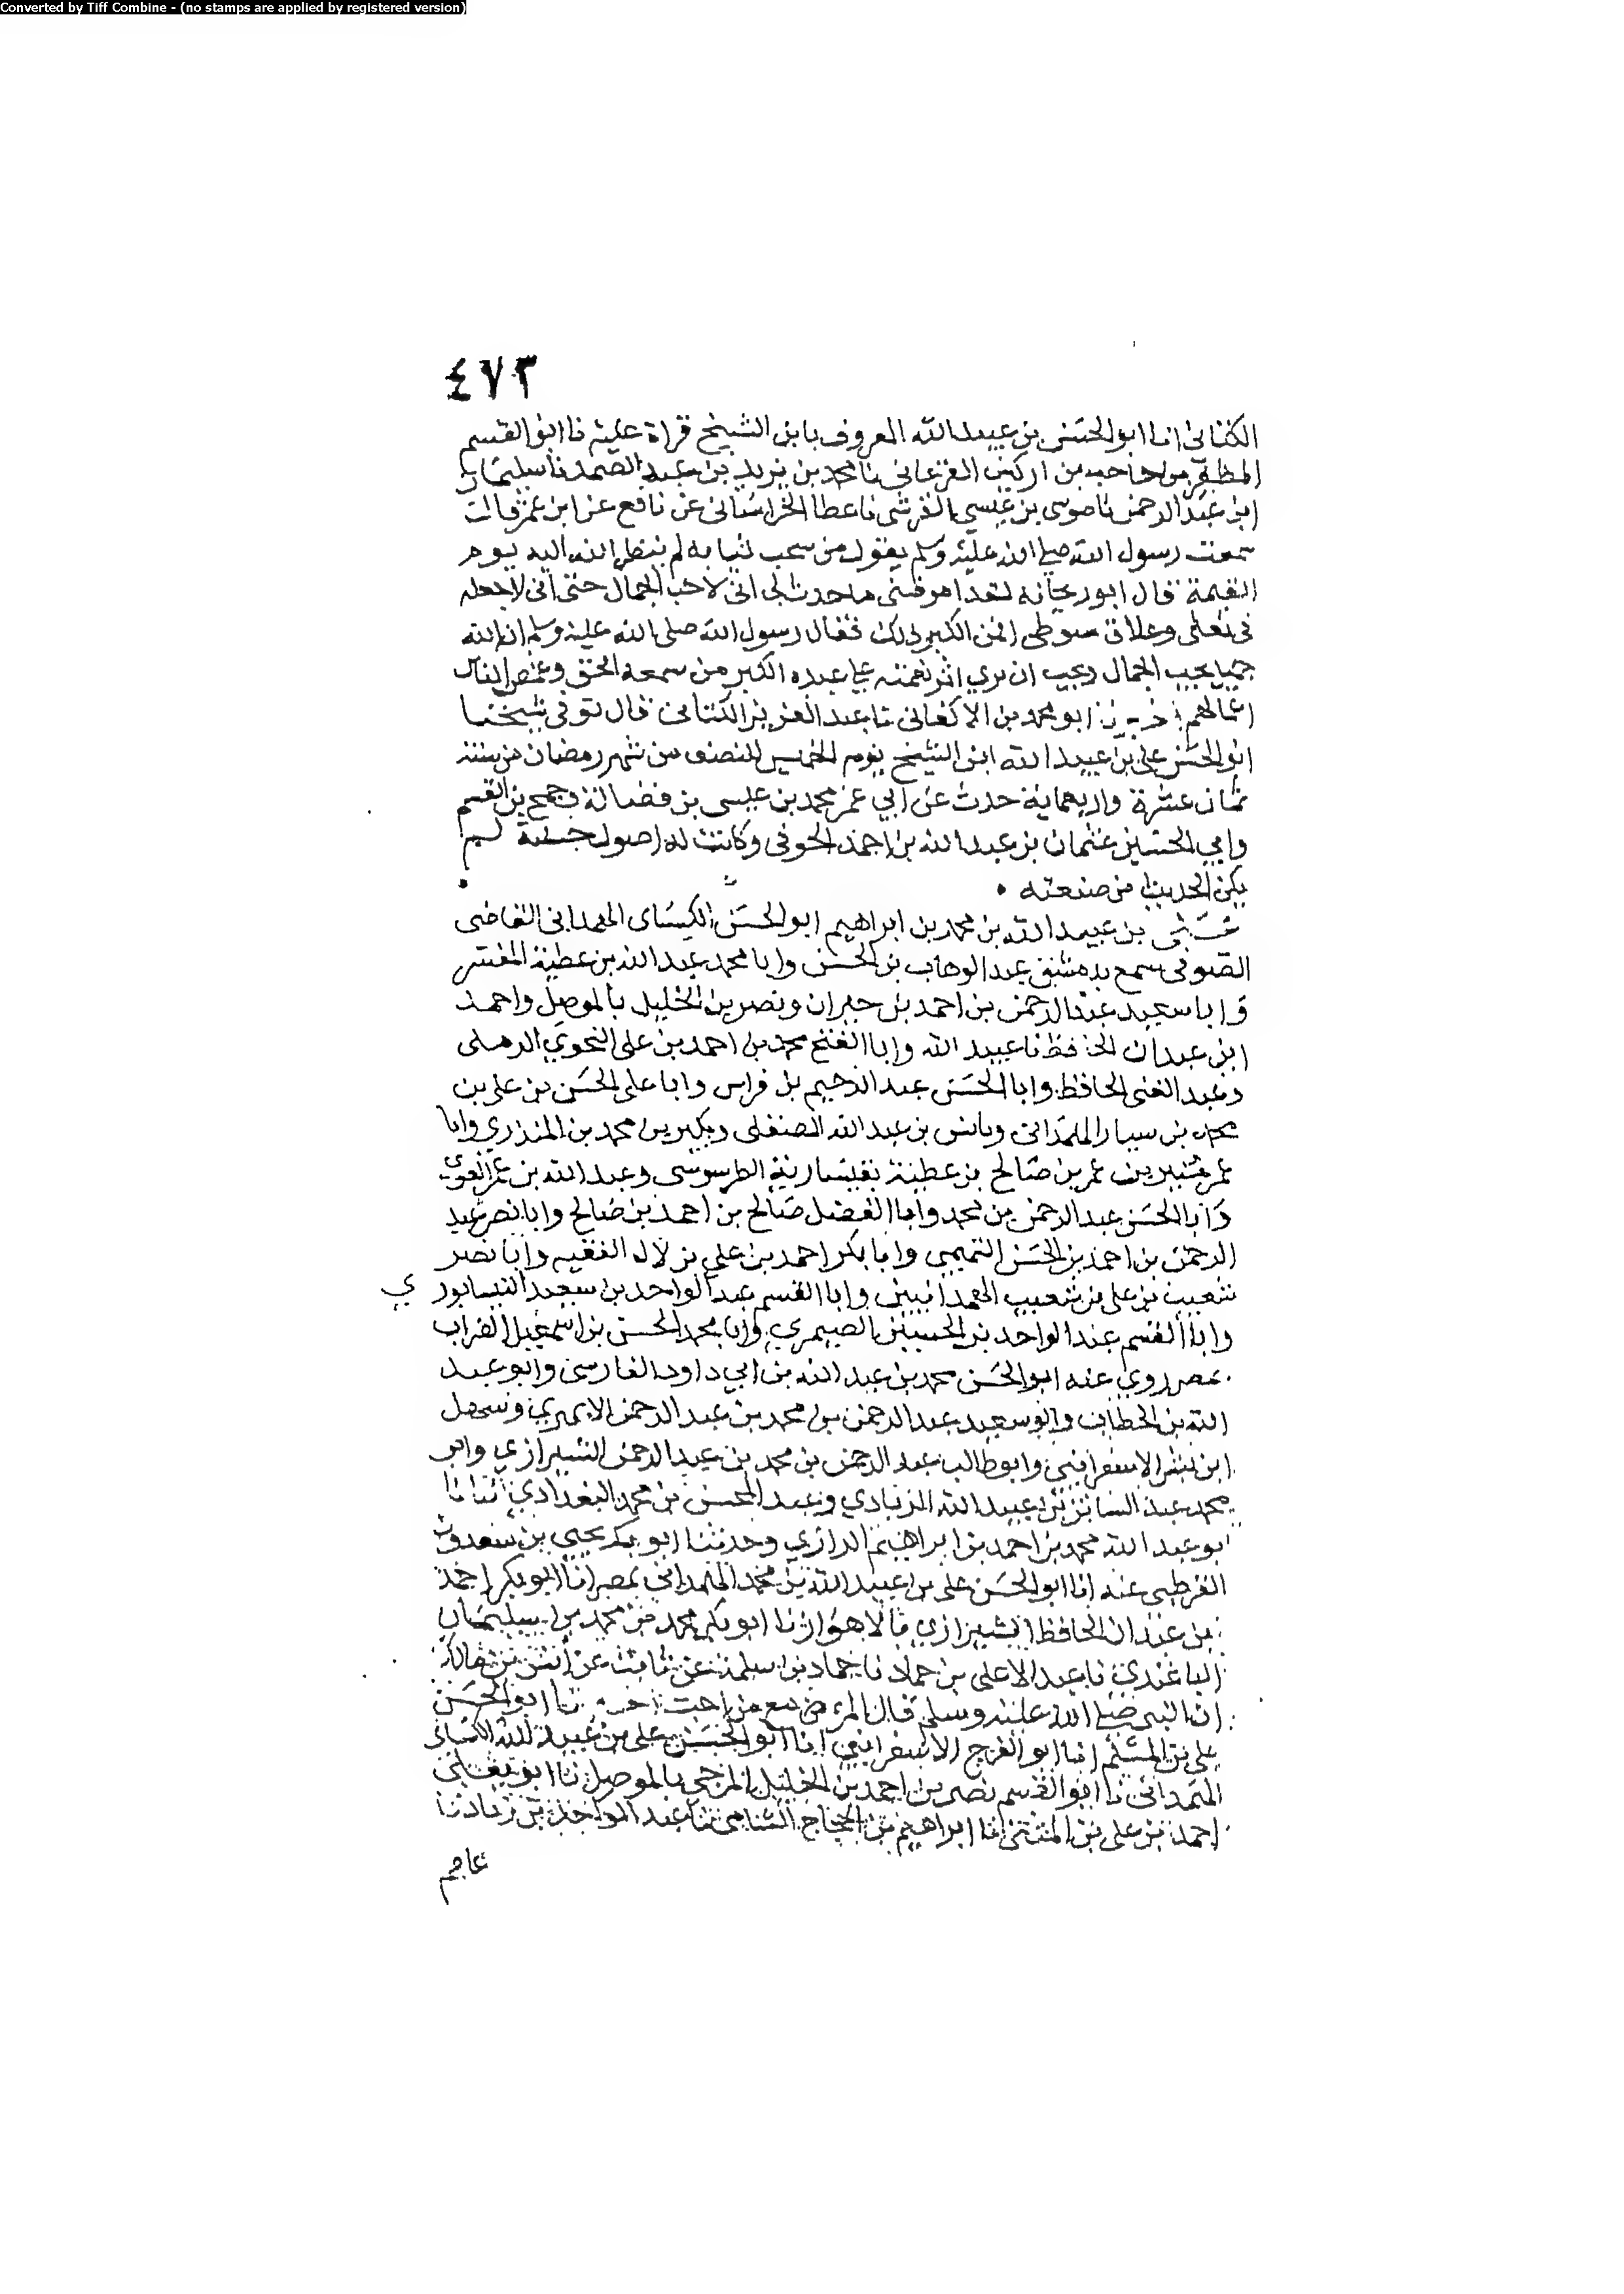 Converted by Tiff Combine - (no stamps are applied by registered version)
٤٧٣
الكتاني انا ابو الحسن بن عبيد الله المعروف بابن الشيخ قراة عليه نا ابو القسم
المظفر بن حاجب بن اركين الفرغاني نا محمد بن يزيد بن عبد الصمد نا سليمان
ابن عبد الرحمن نا موسى بن عيسى القرشي نا عطا الخراساني عن نافع عن ابن عمر قال
سمعت رسول الله صلى الله عليه وسلم يقول من سحب ثيابه لم ينظر الله اليه يوم
القيمة قال ابو ريحانه لقد امرضني ما حدثت اني لاحب الجمال حتى اني لاجعله
في نعلي وعلاق سوطي افمن الكبر ذلك فقال رسول الله صلى الله عليه وسلم ان الله
جميل يحب الجمال ويحب ان يرى اثر نعمته على عبده الكبر من سفه الحق وغمص الناس
اعمالهم اخبرنا ابو محمد بن الاكفاني نا عبد العزيز الكتاني قال توفي شيخنا
ابو الحسن علي بن عبيد الله ابن الشيخ يوم الخميس للنصف من شهر رمضان من سنة
ثمان عشرة واربعماية حدث عن ابي عمر محمد بن عيسى بن فضالة وجمح بن القسم
وابي الحسين عثمان بن عبد الله بن احمد الحوفي وكانت له اصول حسنة لم
يكن الحديث من صنعته
علي بن عبيد الله بن محمد بن ابراهيم ابو الحسن الكيساي الهمداني القاضي
الصوفي سمع بدمشق عبد الوهاب بن الحسن وابا محمد عبد الله بن عطية المفسر
وابا سعيد عبد الرحمن بن احمد بن خيران ونصر بن الخليل بالموصل واحمد
ابن عبدان الحافظ نا عبيد الله وابا الفتح محمد بن احمد بن علي النحوي الرملي
وعبد الغني الحافظ وابا الحسن عبد الرحيم بن فراس وابا علي الحسن بن علي بن
محمد بن سيار الهمداني ويانس بن عبد الله الصقلي وبكير بن محمد بن المنذري وابا
عمر عمر بن صالح بن عطية بقيسارية الطرسوسي وعبد الله بن عمر
وابا الحسن عبد الرحمن بن محمد وابا الفضل صالح بن احمد بن صالح وابا نصر عبد
الرحمن بن احمد بن الحسن التميمي وابا بكر احمد بن علي بن لال الفقيه وابا نصر
شعيب بن علي بن شعيب الهمدانيين وابا القسم عبد الواحد بن سعيد النيسابوري
وابا القسم عبد الواحد بن الحسين الصيمري وابا محمد الحسن بن اسمعيل الضراب
بمصر روى عنه ابو الحسن محمد بن عبد الله بن ابي داود الفارسي وابو عبد
الله بن الحطاب وابو سعيد عبد الرحمن بن محمد بن عبد الرحمن الابهري وسهل
ابن بشر الاسفرايني وابو طالب عبد الرحمن بن محمد بن عبد الرحمن الشيرازي وابو
محمد عبد الساتر بن عبيد الله الزيادي وعبد المحسن بن محمد البغدادي انبانا
ابو عبد الله محمد بن احمد بن ابراهيم الرازي وحدثنا ابو بكر يحيى بن سعدون
القرطبي عنه انا ابو الحسن علي بن عبيد الله بن محمد الهمداني بمصر انا ابو بكر احمد
بن عبدان الحافظ الشيرازي بالاهواز نا ابو بكر محمد بن محمد بن سليمان
الباغندي نا عبد الاعلى بن حماد نا حماد بن سلمة عن ثابت عن انس بن مالك
ان النبي صلى الله عليه وسلم قال المرء مع من احب اخبرنا ابو الحسن
علي بن المسلم انا ابو الفرج الاسفرايني انا ابو الحسن علي بن عبيد الله الكسائي
الهمداني نا ابو القسم نصر بن احمد بن الخليل المرجي بالموصل نا ابو يعلى
احمد بن علي بن المثنى نا ابراهيم بن الحجاج الشامي نا عبد الواحد بن زياد نا
عاصم